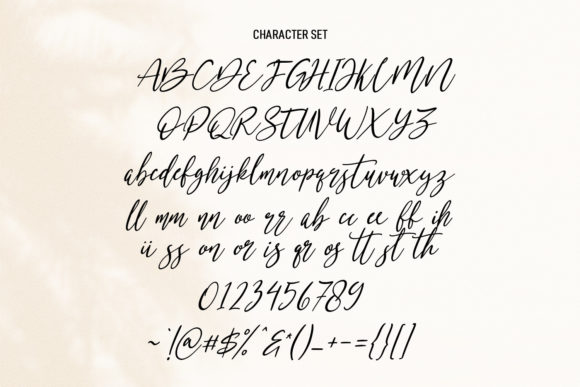 CHARACTER SET
ABCDEFGHIJKLMN
OPQRSTUVWXYZ
abcdefghijklmnopqrstuvwxyz
ll mm nn oo rr ab cc ee ff ih
ii ss on or is qr os tt st th
0123456789
~`!@#$%^&*()_+-={}[]